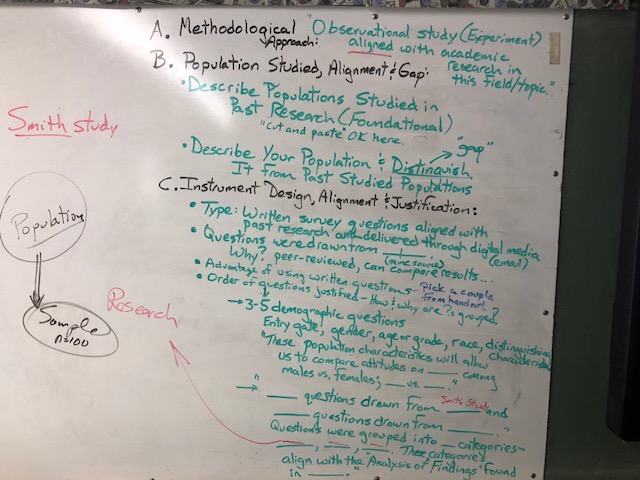 A. Methodological Approach: "Observational study (Experiment)
aligned with academic
research in
this field/topic."
B. Population Studied, Alignment & Gap:
• Describe Populations Studied in
Past Research (Foundational)
"cut and paste" OK here.
"gap"
• Describe Your Population & Distinguish
It from Past Studied Populations
C. Instrument Design, Alignment & Justification:
• Type: Written survey questions aligned with
past research and delivered through digital media
(email)
• Questions were drawn from ____.
(name source)
Why? peer-reviewed, can compare results...
• Advantage of using written questions - Pick a couple
from handout!
• Order of questions justified - How & why are ?s grouped?
→ 3-5 demographic questions
Entry gate, gender, age or grade, race, distinguishing
characteristics
"These population characteristics will allow
us to compare attitudes on ____ among
males vs. females; __ vs. __."
→ ____ questions drawn from Smith Study and
____ questions drawn from ____."
Questions were grouped into __ categories-
___, ___, ___. These categories
align with the "Analysis of Findings" found
in ____."
Smith study
Population
Sample
n=100
Research